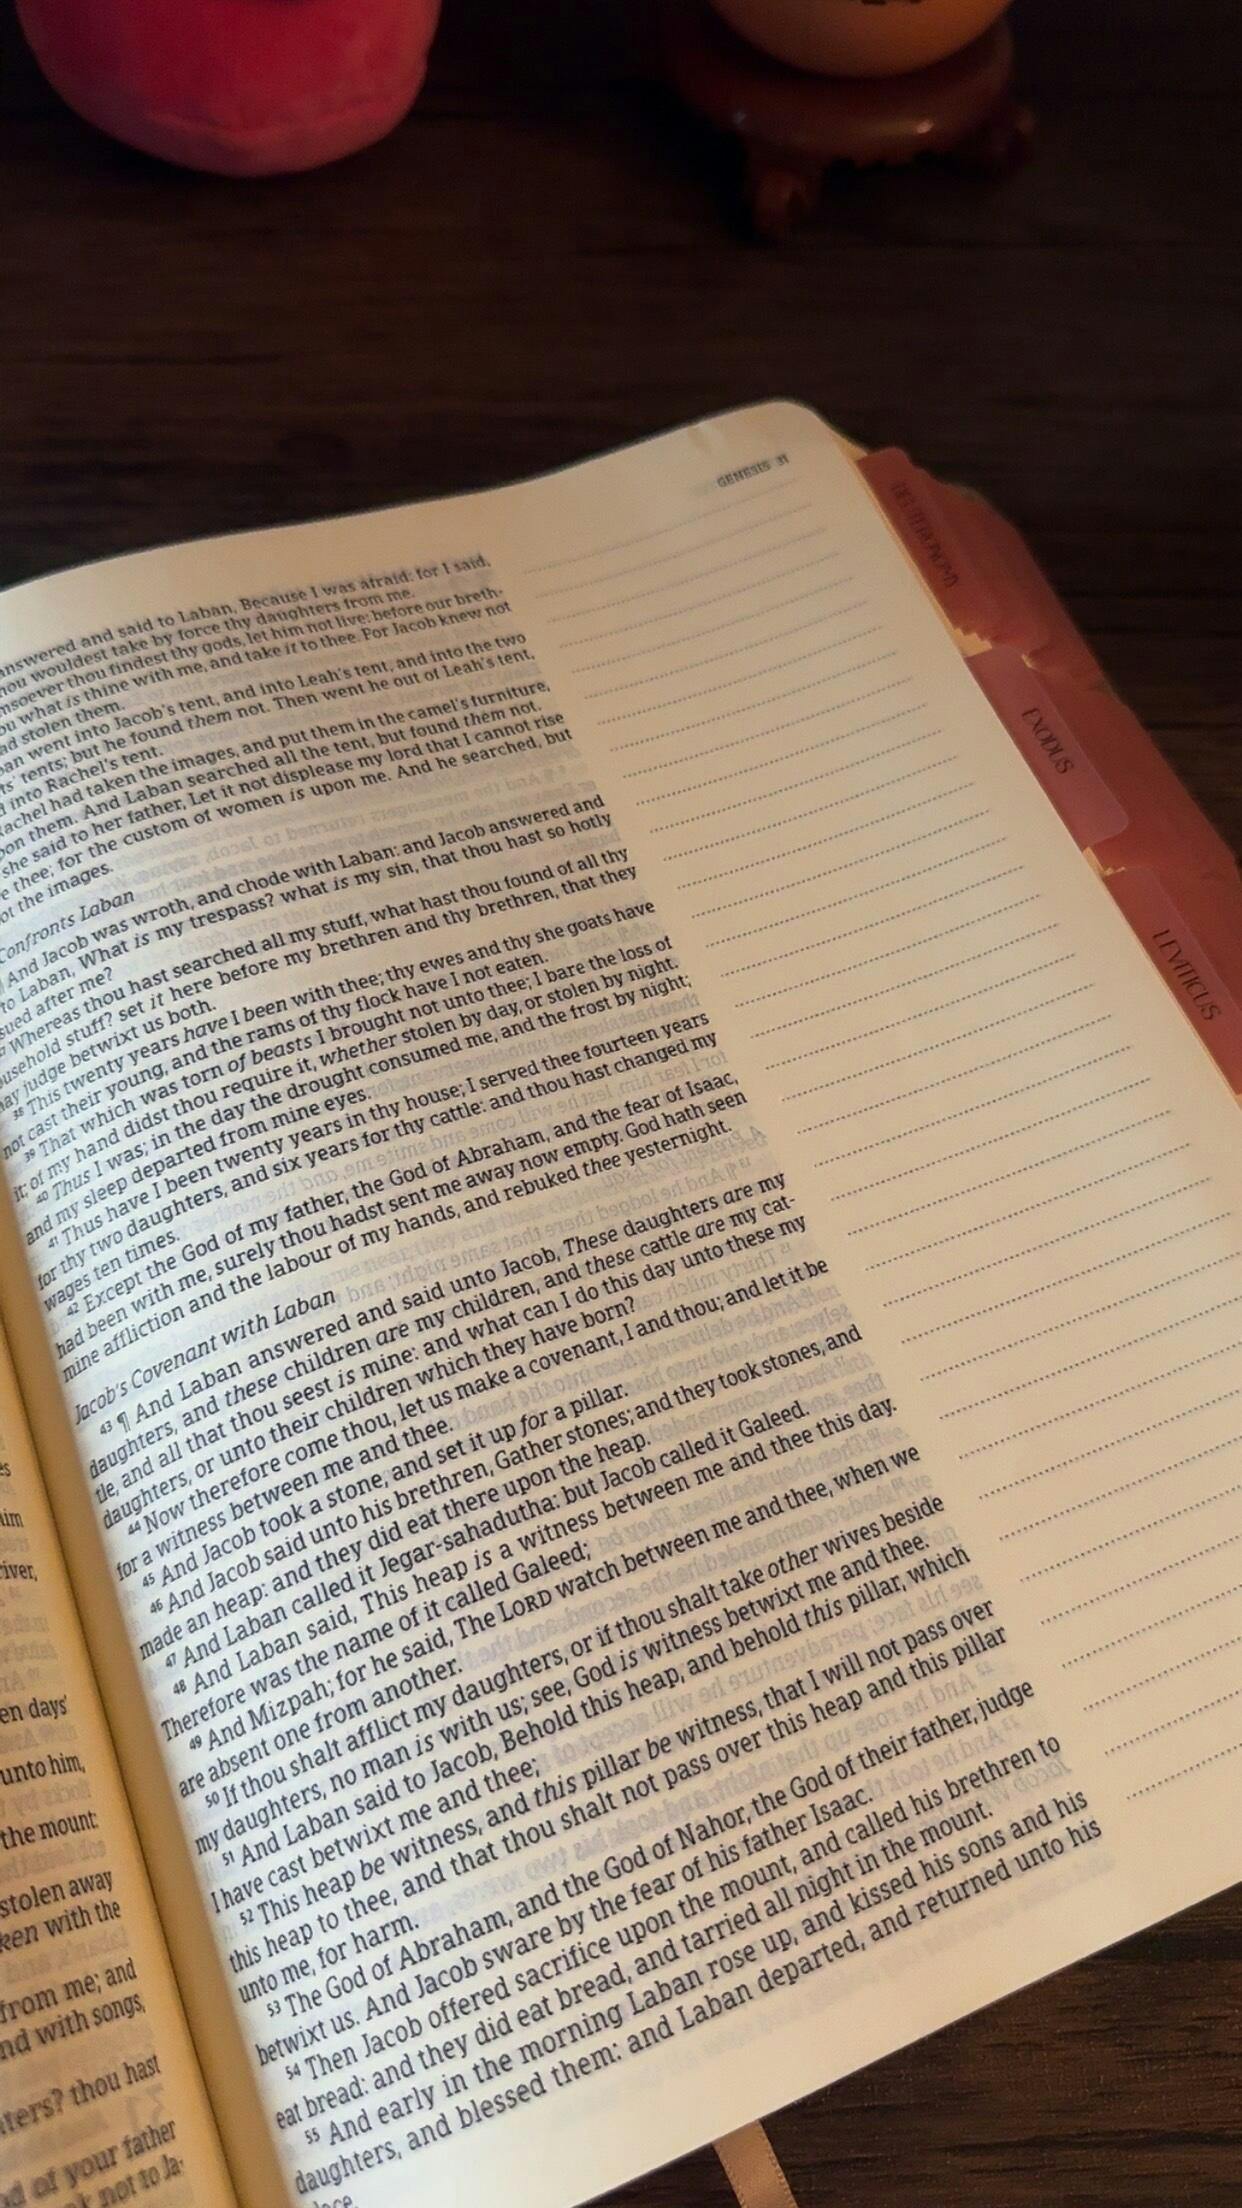 GENESIS 31
answered and said to Laban, Because I was afraid: for I said,
thou wouldest take by force thy daughters from me.
msoever thou findest thy gods, let him not live: before our breth-
ou what is thine with me, and take it to thee. For Jacob knew not
ad stolen them.
ban went into Jacob's tent, and into Leah's tent, and into the two
ts' tents; but he found them not. Then went he out of Leah's tent,
d into Rachel's tent.
Rachel had taken the images, and put them in the camel's furniture,
pon them. And Laban searched all the tent, but found them not.
she said to her father, Let it not displease my lord that I cannot rise
e thee; for the custom of women is upon me. And he searched, but
ot the images.
Confronts Laban
And Jacob was wroth, and chode with Laban: and Jacob answered and
to Laban, What is my trespass? what is my sin, that thou hast so hotly
sued after me?
37 Whereas thou hast searched all my stuff, what hast thou found of all thy
ousehold stuff? set it here before my brethren and thy brethren, that they
may judge betwixt us both.
38 This twenty years have I been with thee; thy ewes and thy she goats have
not cast their young, and the rams of thy flock have I not eaten.
39 That which was torn of beasts I brought not unto thee; I bare the loss of
it; of my hand didst thou require it, whether stolen by day, or stolen by night.
40 Thus I was; in the day the drought consumed me, and the frost by night;
and my sleep departed from mine eyes.
41 Thus have I been twenty years in thy house; I served thee fourteen years
for thy two daughters, and six years for thy cattle: and thou hast changed my
wages ten times.
42 Except the God of my father, the God of Abraham, and the fear of Isaac,
had been with me, surely thou hadst sent me away now empty. God hath seen
mine affliction and the labour of my hands, and rebuked thee yesternight.
Jacob's Covenant with Laban
43 ¶ And Laban answered and said unto Jacob, These daughters are my
daughters, and these children are my children, and these cattle are my cat-
tle, and all that thou seest is mine: and what can I do this day unto these my
daughters, or unto their children which they have born?
44 Now therefore come thou, let us make a covenant, I and thou; and let it be
for a witness between me and thee.
45 And Jacob took a stone, and set it up for a pillar.
46 And Jacob said unto his brethren, Gather stones; and they took stones, and
made an heap: and they did eat there upon the heap.
47 And Laban called it Jegar-sahadutha: but Jacob called it Galeed.
48 And Laban said, This heap is a witness between me and thee this day.
Therefore was the name of it called Galeed;
49 And Mizpah; for he said, The LORD watch between me and thee, when we
are absent one from another.
50 If thou shalt afflict my daughters, or if thou shalt take other wives beside
my daughters, no man is with us; see, God is witness betwixt me and thee.
51 And Laban said to Jacob, Behold this heap, and behold this pillar, which
I have cast betwixt me and thee;
52 This heap be witness, and this pillar be witness, that I will not pass over
this heap to thee, and that thou shalt not pass over this heap and this pillar
unto me, for harm.
53 The God of Abraham, and the God of Nahor, the God of their father, judge
betwixt us. And Jacob sware by the fear of his father Isaac.
54 Then Jacob offered sacrifice upon the mount, and called his brethren to
eat bread: and they did eat bread, and tarried all night in the mount.
55 And early in the morning Laban rose up, and kissed his sons and his
daughters, and blessed them: and Laban departed, and returned unto his
lace.
him
river,
en days'
unto him,
the mount:
stolen away
ken with the
from me; and
nd with songs,
hters? thou hast
d of your father
k not to Ja-
EXODUS
LEVITICUS